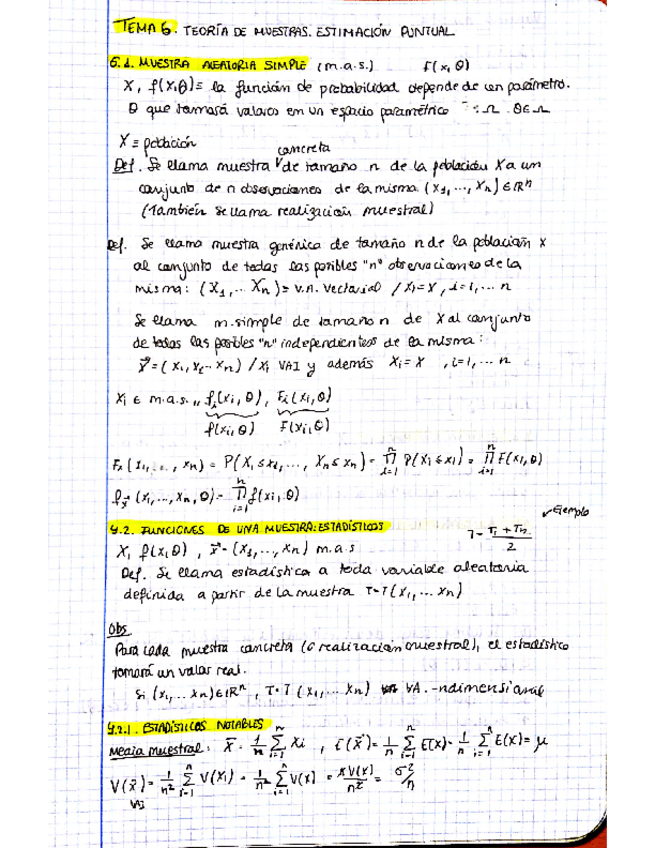 TEMA 6. TEORÍA DE MUESTRAS. ESTIMACIÓN PUNTUAL
6.1. MUESTRA ALEATORIA SIMPLE (m.a.s.) F(x,θ)
X, f(x,θ) = la función de probabilidad depende de un parámetro.
θ que tomará valores en un espacio paramétrico : Ω. θ∈Ω
X ≡ población
concreta
Def. Se llama muestra ˅ de tamaño n de la población X a un
conjunto de n observaciones de la misma (x1, ..., xn) ∈ ℝⁿ
(También se llama realización muestral)
Def. Se llama muestra genérica de tamaño n de la población X
al conjunto de todas las posibles "n" observaciones de la
misma: (X1, ... Xn) = V.A. Vectorial / Xi=X, i=1, ... n
Se llama m.simple de tamaño n de X al conjunto
de todas las posibles "n" independientes de la misma:
X⃗ = (X1, X2 ... Xn) / Xi VAI y además Xi = X , i=1, ... n
Xi ∈ m.a.s. fi(xi, θ), Fi(xi, θ)
f(xi, θ) F(xi, θ)
Fx(x1, ..., xn) = P(X1 ≤ x1, ..., Xn ≤ xn) = ∏ⁿᵢ₌₁ P(Xi ≤ xi) = ∏ⁿᵢ₌₁ F(xi, θ)
fx⃗(x1, ..., xn, θ) = ∏ⁿᵢ₌₁ f(xi, θ)
4.2. FUNCIONES DE UNA MUESTRA: ESTADÍSTICOS
Ejemplo
T = (T1 + Tn)/2
X, f(x,θ), X⃗ = (X1, ..., Xn) m.a.s
Def. Se llama estadística a toda variable aleatoria
definida a partir de la muestra T=T(X1, ... Xn)
Obs
Para cada muestra concreta (o realización muestral), el estadístico
tomará un valor real.
Si (x1, ... xn) ∈ ℝⁿ, T=T(X1, ... Xn) VA. -ndimensional
4.2.1. ESTADÍSTICOS NOTABLES
Media muestral: X̄ = 1/n ∑ⁿᵢ₌₁ Xi , E(X̄) = 1/n ∑ⁿᵢ₌₁ E(X) = 1/n ∑ⁿᵢ₌₁ E(X) = μ
V(X̄) = 1/n² ∑ⁿᵢ₌₁ V(Xi) = 1/n² ∑ⁿᵢ₌₁ V(X) = nV(X)/n² = σ²/n
VAI